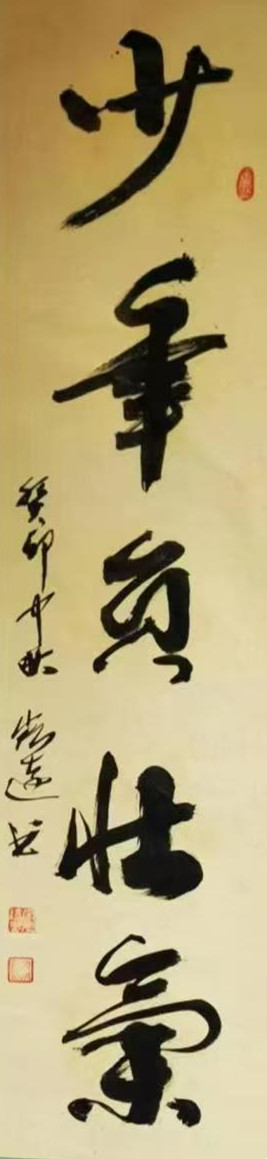 少年負壯氣
癸卯中秋
遠書